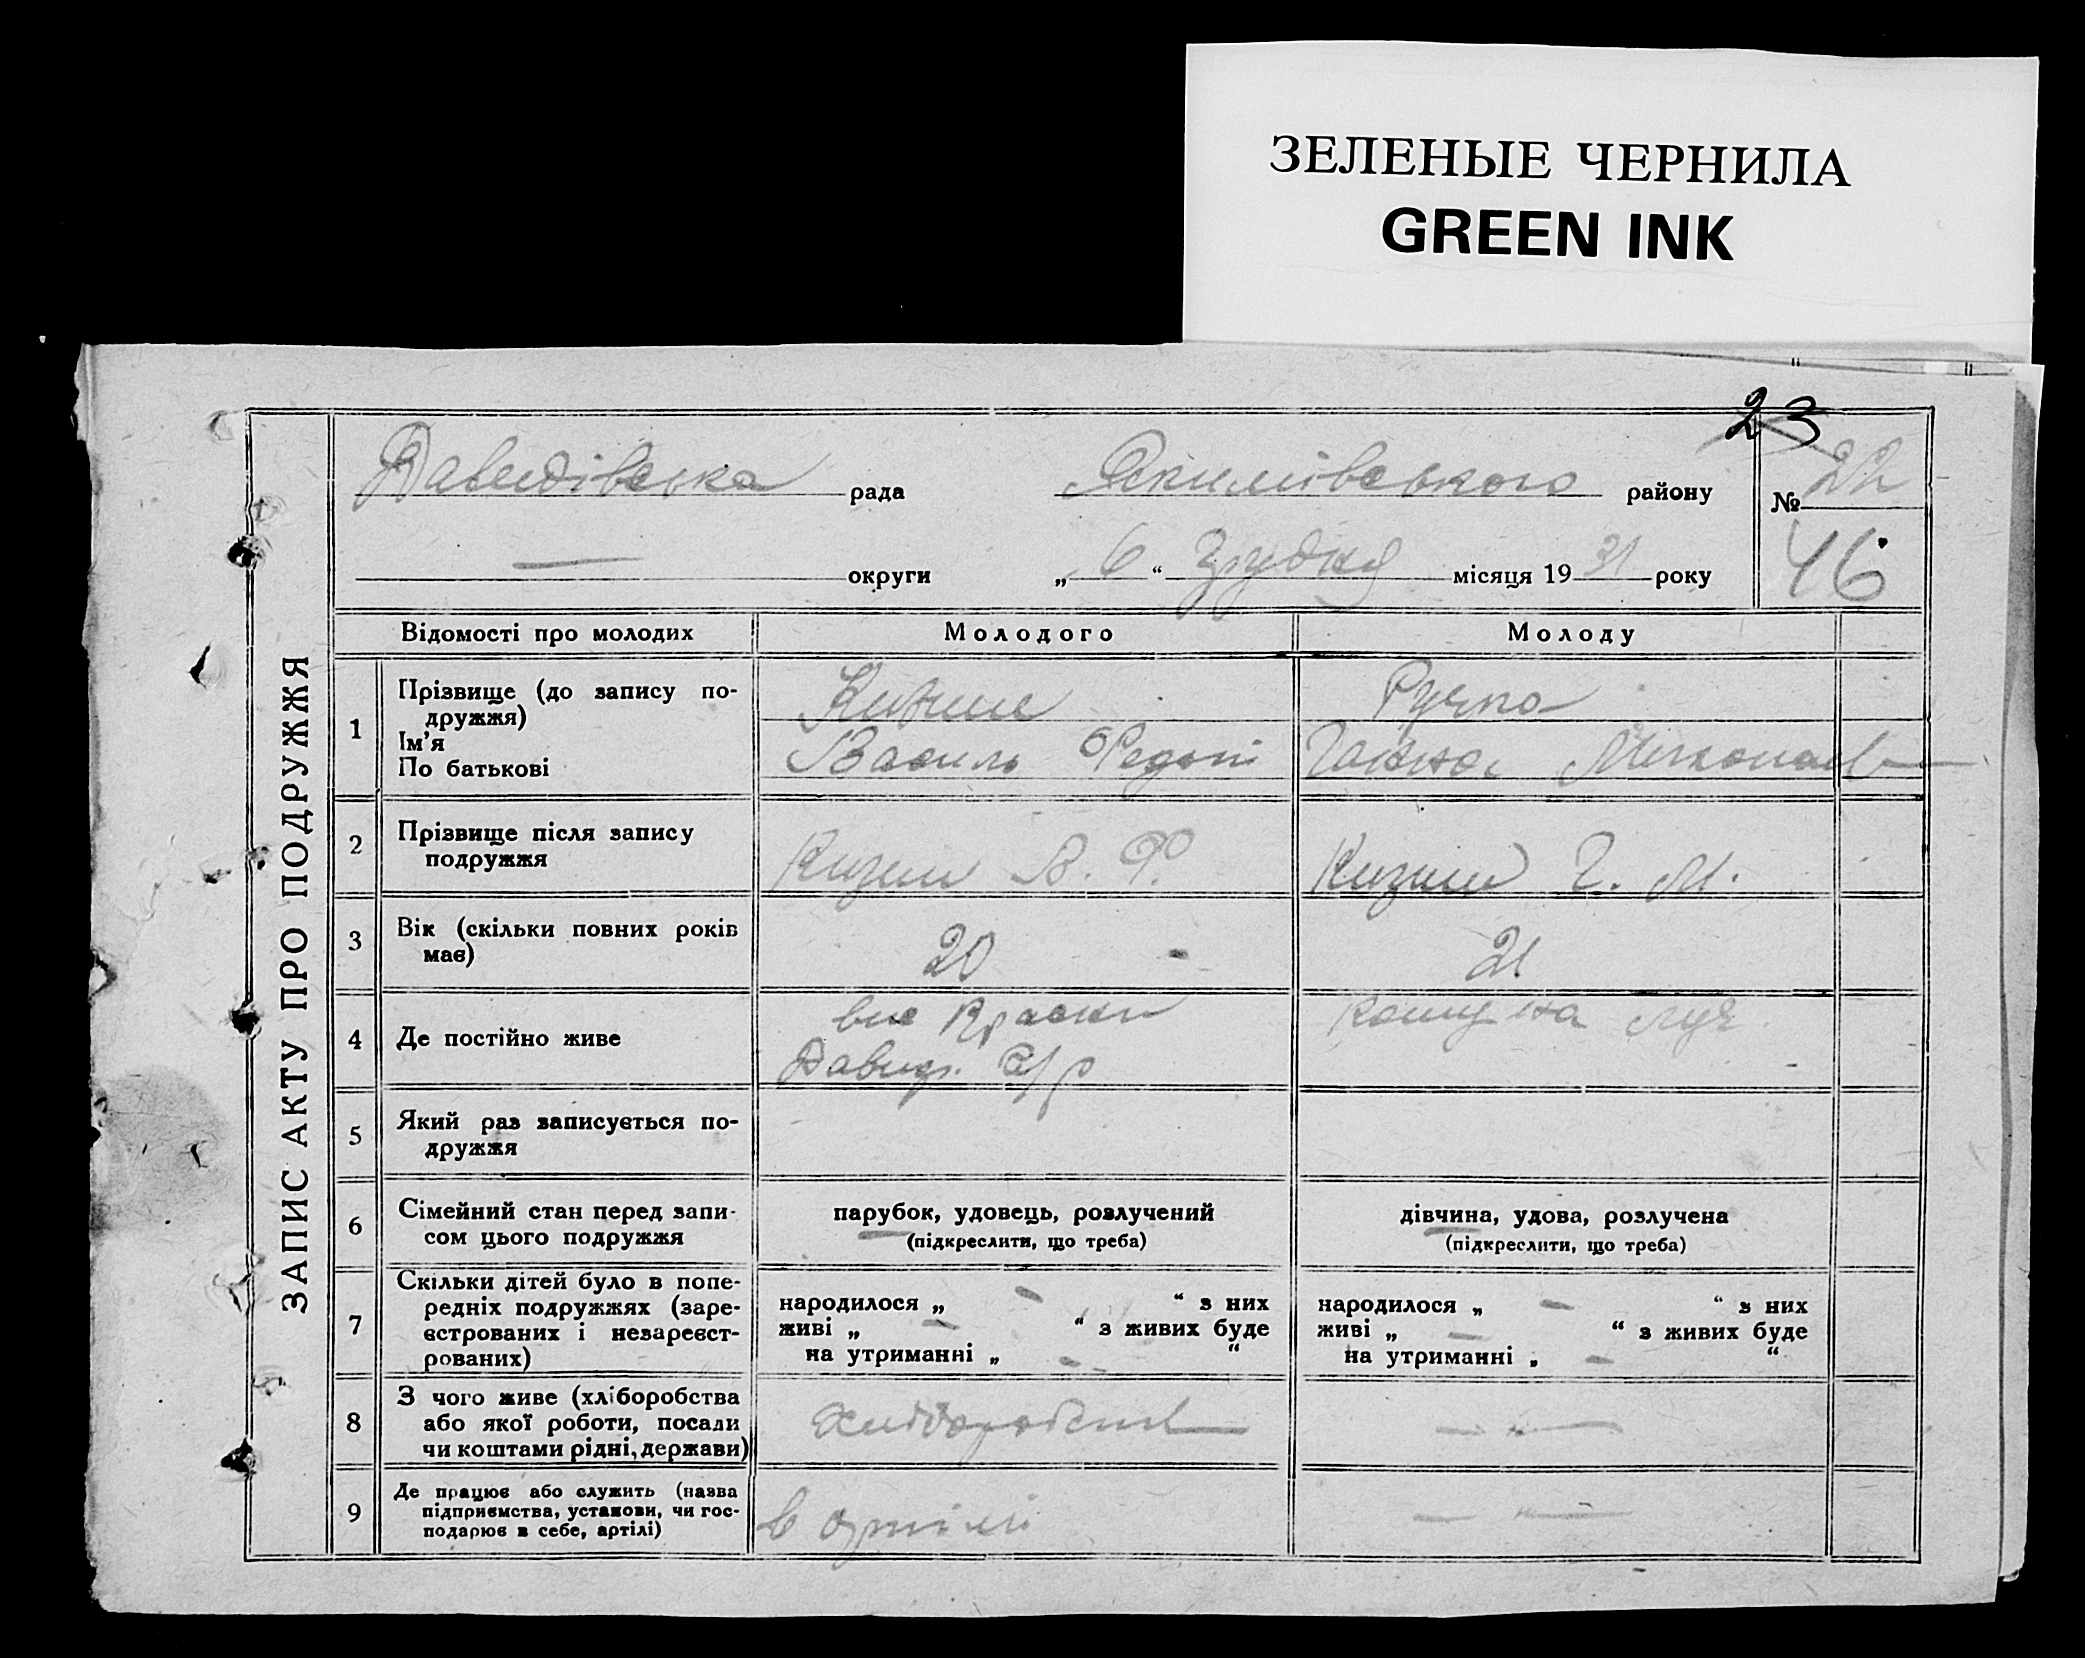 ЗЕЛЕНЫЕ ЧЕРНИЛА
GREEN INK
23
ЗАПИС АКТУ ПРО ПОДРУЖЖЯ
Давидівська рада Якимівського району № 22
— округи „ 6 “ Грудня місяця 19 31 року 46
Відомості про молодих Молодого Молоду
1 Прізвище (до запису по-
дружжя)
Ім’я
По батькові
Кизим
Василь Федот
Ручка
Ганна Миколаев
2 Прізвище після запису
подружжя
Кизим В. Ф. Кизим Г. М.
3 Вік (скільки повних років
має)
20 21
4 Де постійно живе
Давид. с/р
5 Який раз записується по-
дружжя
6 Сімейний стан перед запи-
сом цього подружжя
парубок, удовець, розлучений
(підкреслити, що треба)
дівчина, удова, розлучена
(підкреслити, що треба)
7 Скільки дітей було в попе-
редніх подружжях (заре-
єстрованих і незареєст-
рованих)
народилося „ — “ з них
живі „ — “ з живих буде
на утриманні „ — “
народилося „ — “ з них
живі „ — “ з живих буде
на утриманні „ — “
8 З чого живе (хліборобства
або якої роботи, посади
чи коштами рідні, держави)
Хліборобств — " —
9 Де працює або служить (назва
підприємства, установи, чи гос-
подарює в себе, артілі)
в артілі — " —